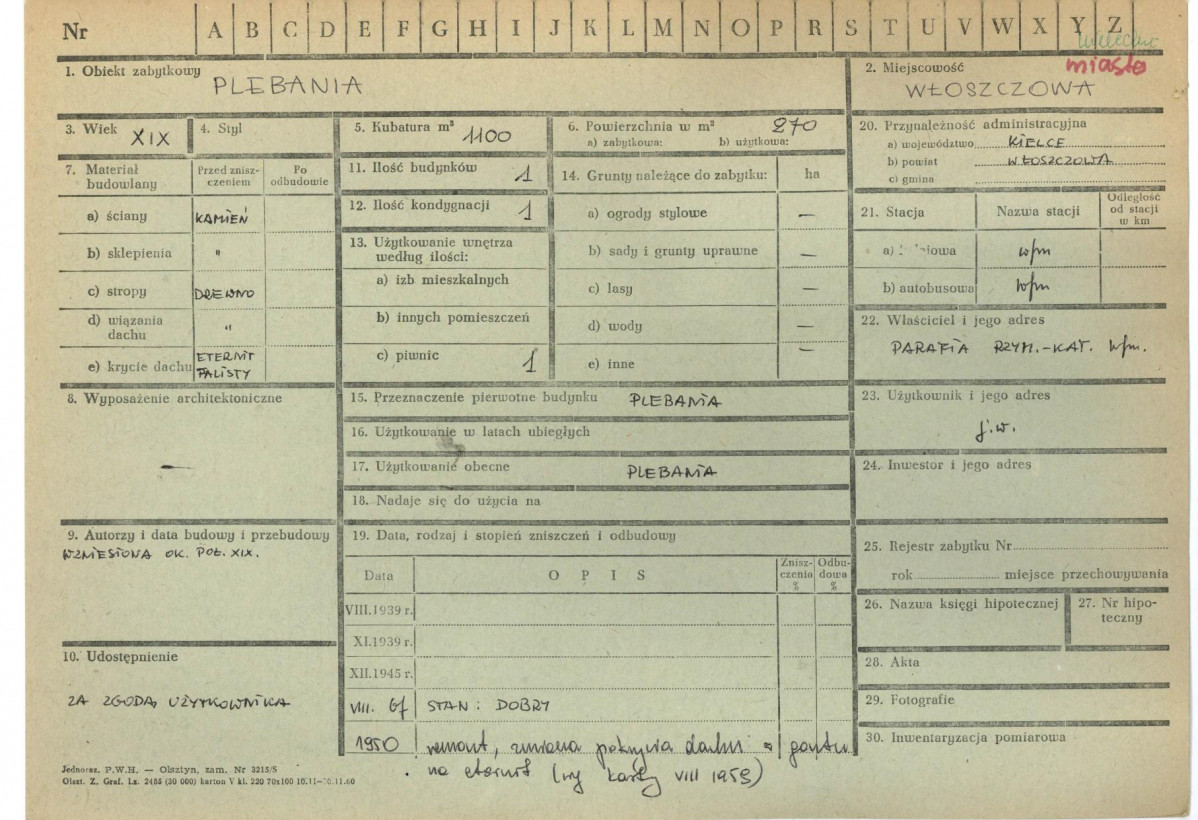 Nr A B C D E F G H I J K L M N O P R S T U V W X Y Z
miasto
1. Obiekt zabytkowy PLEBANIA
2. Miejscowość WŁOSZCZOWA
3. Wiek XIX
4. Styl
5. Kubatura m³ 1100
6. Powierzchnia w m² 270
a) zabytkowa: b) użytkowa:
7. Materiał budowlany
Przed zniszczeniem
Po odbudowie
a) ściany KAMIEŃ
b) sklepienia "
c) stropy DREWNO
d) wiązania dachu "
e) krycie dachu ETERNIT FALISTY
8. Wyposażenie architektoniczne
—
9. Autorzy i data budowy i przebudowy
WZNIESIONA OK. POŁ. XIX.
10. Udostępnienie
ZA ZGODĄ UŻYTKOWNIKA
11. Ilość budynków 1
12. Ilość kondygnacji 1
13. Użytkowanie wnętrza według ilości:
a) izb mieszkalnych
b) innych pomieszczeń
c) piwnic 1
14. Grunty należące do zabytku: ha
a) ogrody stylowe —
b) sady i grunty uprawne —
c) lasy —
d) wody —
e) inne —
15. Przeznaczenie pierwotne budynku PLEBANIA
16. Użytkowanie w latach ubiegłych
17. Użytkowanie obecne PLEBANIA
18. Nadaje się do użycia na
19. Data, rodzaj i stopień zniszczeń i odbudowy
Data OPIS Zniszczenia % Odbudowa %
VIII.1939 r.
XI.1939 r.
XII.1945 r.
VIII. STAN: DOBRY
1950 remont, zmiana pokrycia dachu z gontu
na eternit (wg karty VIII 1959)
20. Przynależność administracyjna
a) województwo KIELCE
b) powiat WŁOSZCZOWA
c) gmina
21. Stacja Nazwa stacji Odległość od stacji w km
a) wfm
b) autobusowa wfm
22. Właściciel i jego adres
PARAFIA RZYM.-KAT. wfm.
23. Użytkownik i jego adres
j.w.
24. Inwestor i jego adres
25. Rejestr zabytku Nr
rok miejsce przechowywania
26. Nazwa księgi hipotecznej
27. Nr hipoteczny
28. Akta
29. Fotografie
30. Inwentaryzacja pomiarowa
Jednoraz. P.W.H. — Olsztyn, zam. Nr 3215/S
Olszt. Z. Graf. Lz. 2485 (30 000) karton V kl. 220 70x100